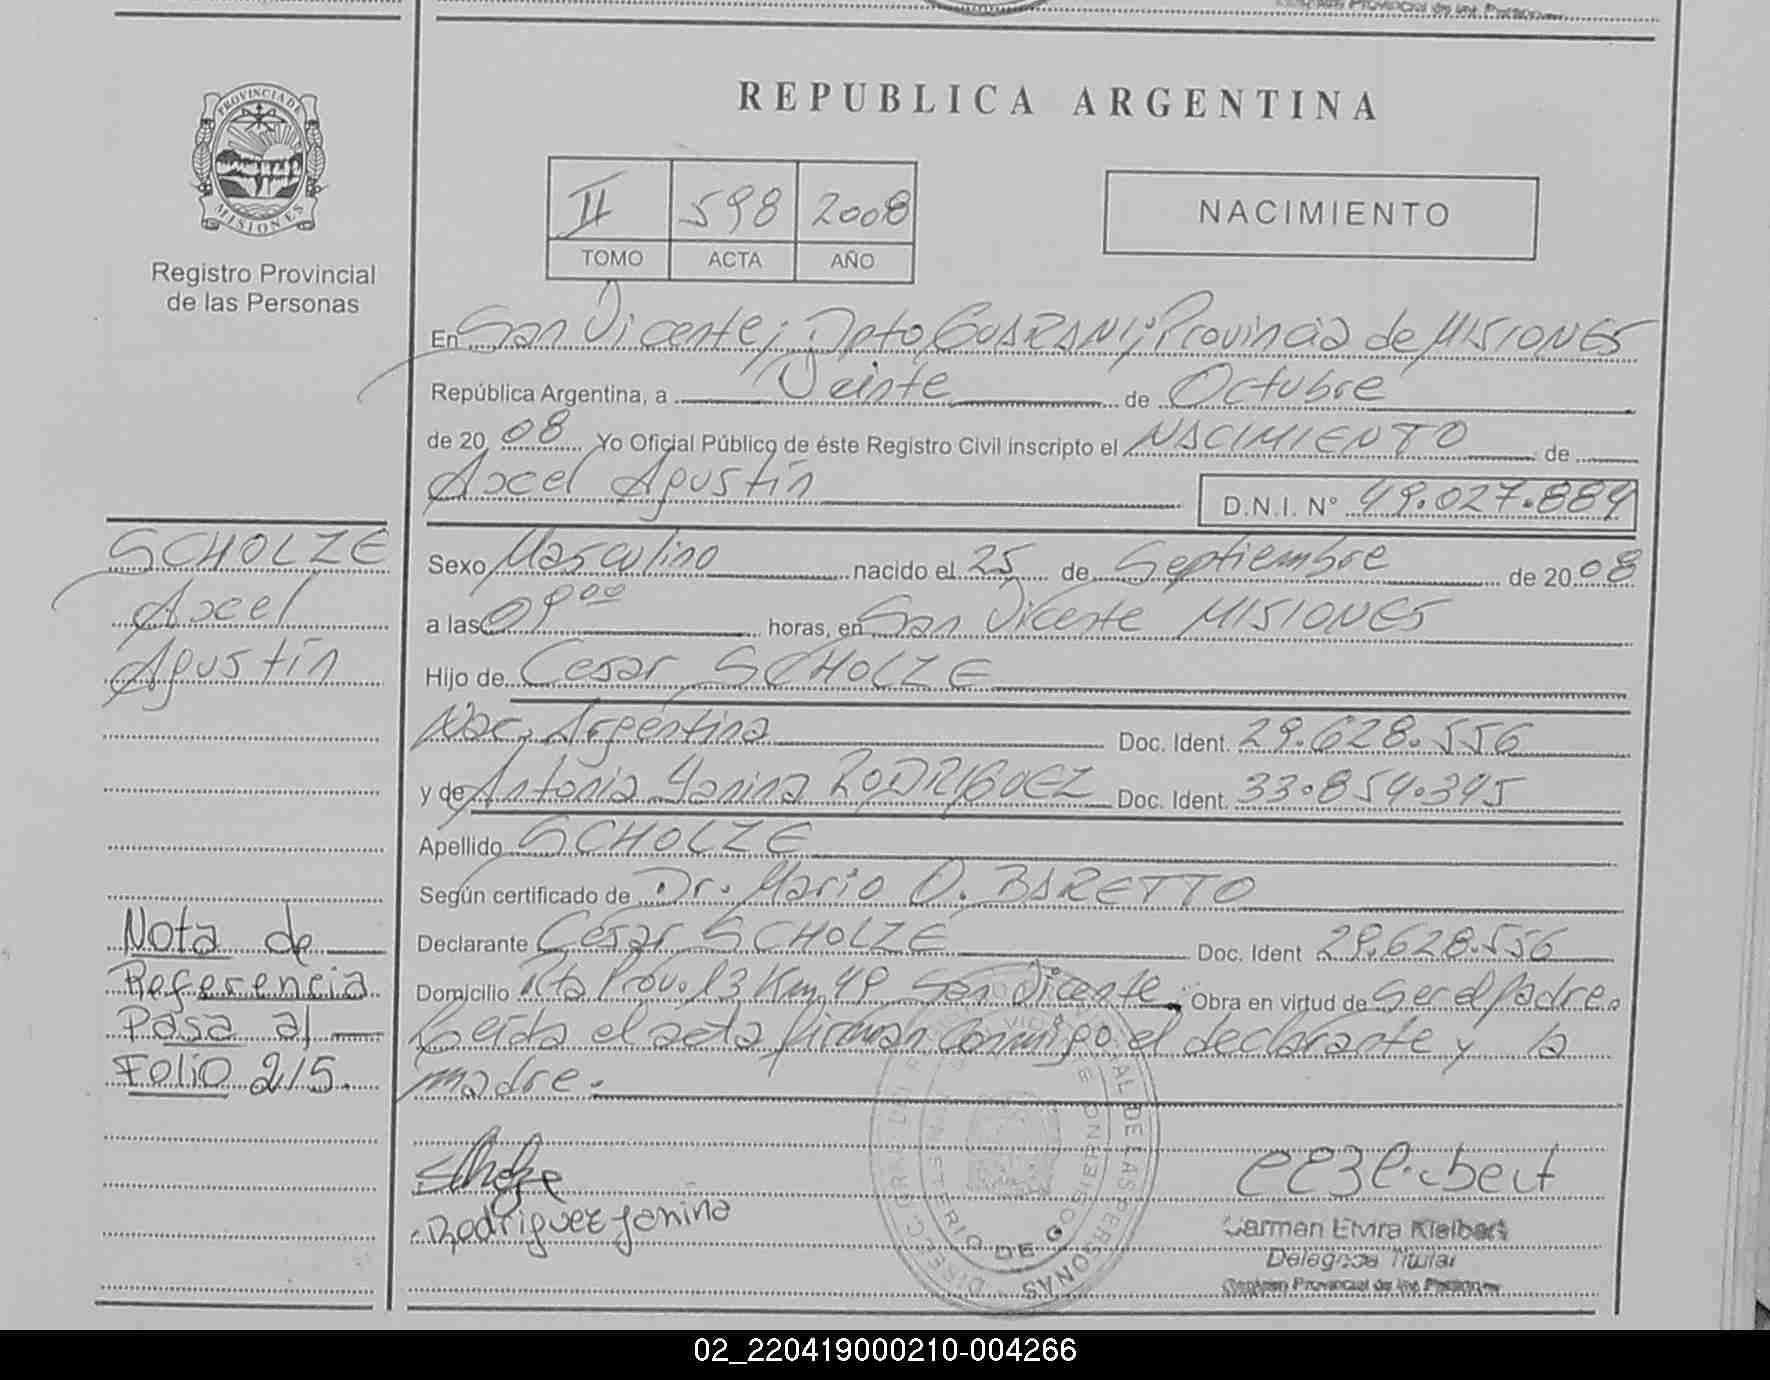 REPUBLICA ARGENTINA
PROVINCIA DE
MISIONES
Registro Provincial
de las Personas
II 598 2008
TOMO ACTA AÑO
NACIMIENTO
En San Vicente; Dpto GUARANI; Provincia de MISIONES
República Argentina, a Veinte de Octubre
de 20 08 Yo Oficial Público de éste Registro Civil inscripto el NACIMIENTO de
Axcel Agustín D.N.I. N° 49.027.884
SCHOLZE
Axcel
Agustín
Sexo Masculino nacido el 25 de Septiembre de 20 08
a las 09 00 horas, en San Vicente MISIONES
Hijo de Cesar SCHOLZE
Nac. Argentina Doc. Ident. 29.628.556
y de Antonia Yanina RODRIGUEZ Doc. Ident. 33.854.345
Apellido SCHOLZE
Según certificado de Dr. Mario O. BARETTO
Declarante Cesar SCHOLZE Doc. Ident 29.628.556
Domicilio Rta Prov. 13 Km 49 San Vicente Obra en virtud de Ser el padre.
Leída el acta firman conmigo el declarante y la
madre.
Nota de
Referencia
Pasa al
Folio 215.
Scholze
Rodriguez Janina
Carmen Elvira Kielbert
Delegada Titular
Registro Provincial de las Personas
DIRECC PROVINCIAL DE LAS PERSONAS
MINISTERIO DE GOBIERNO
02_220419000210-004266